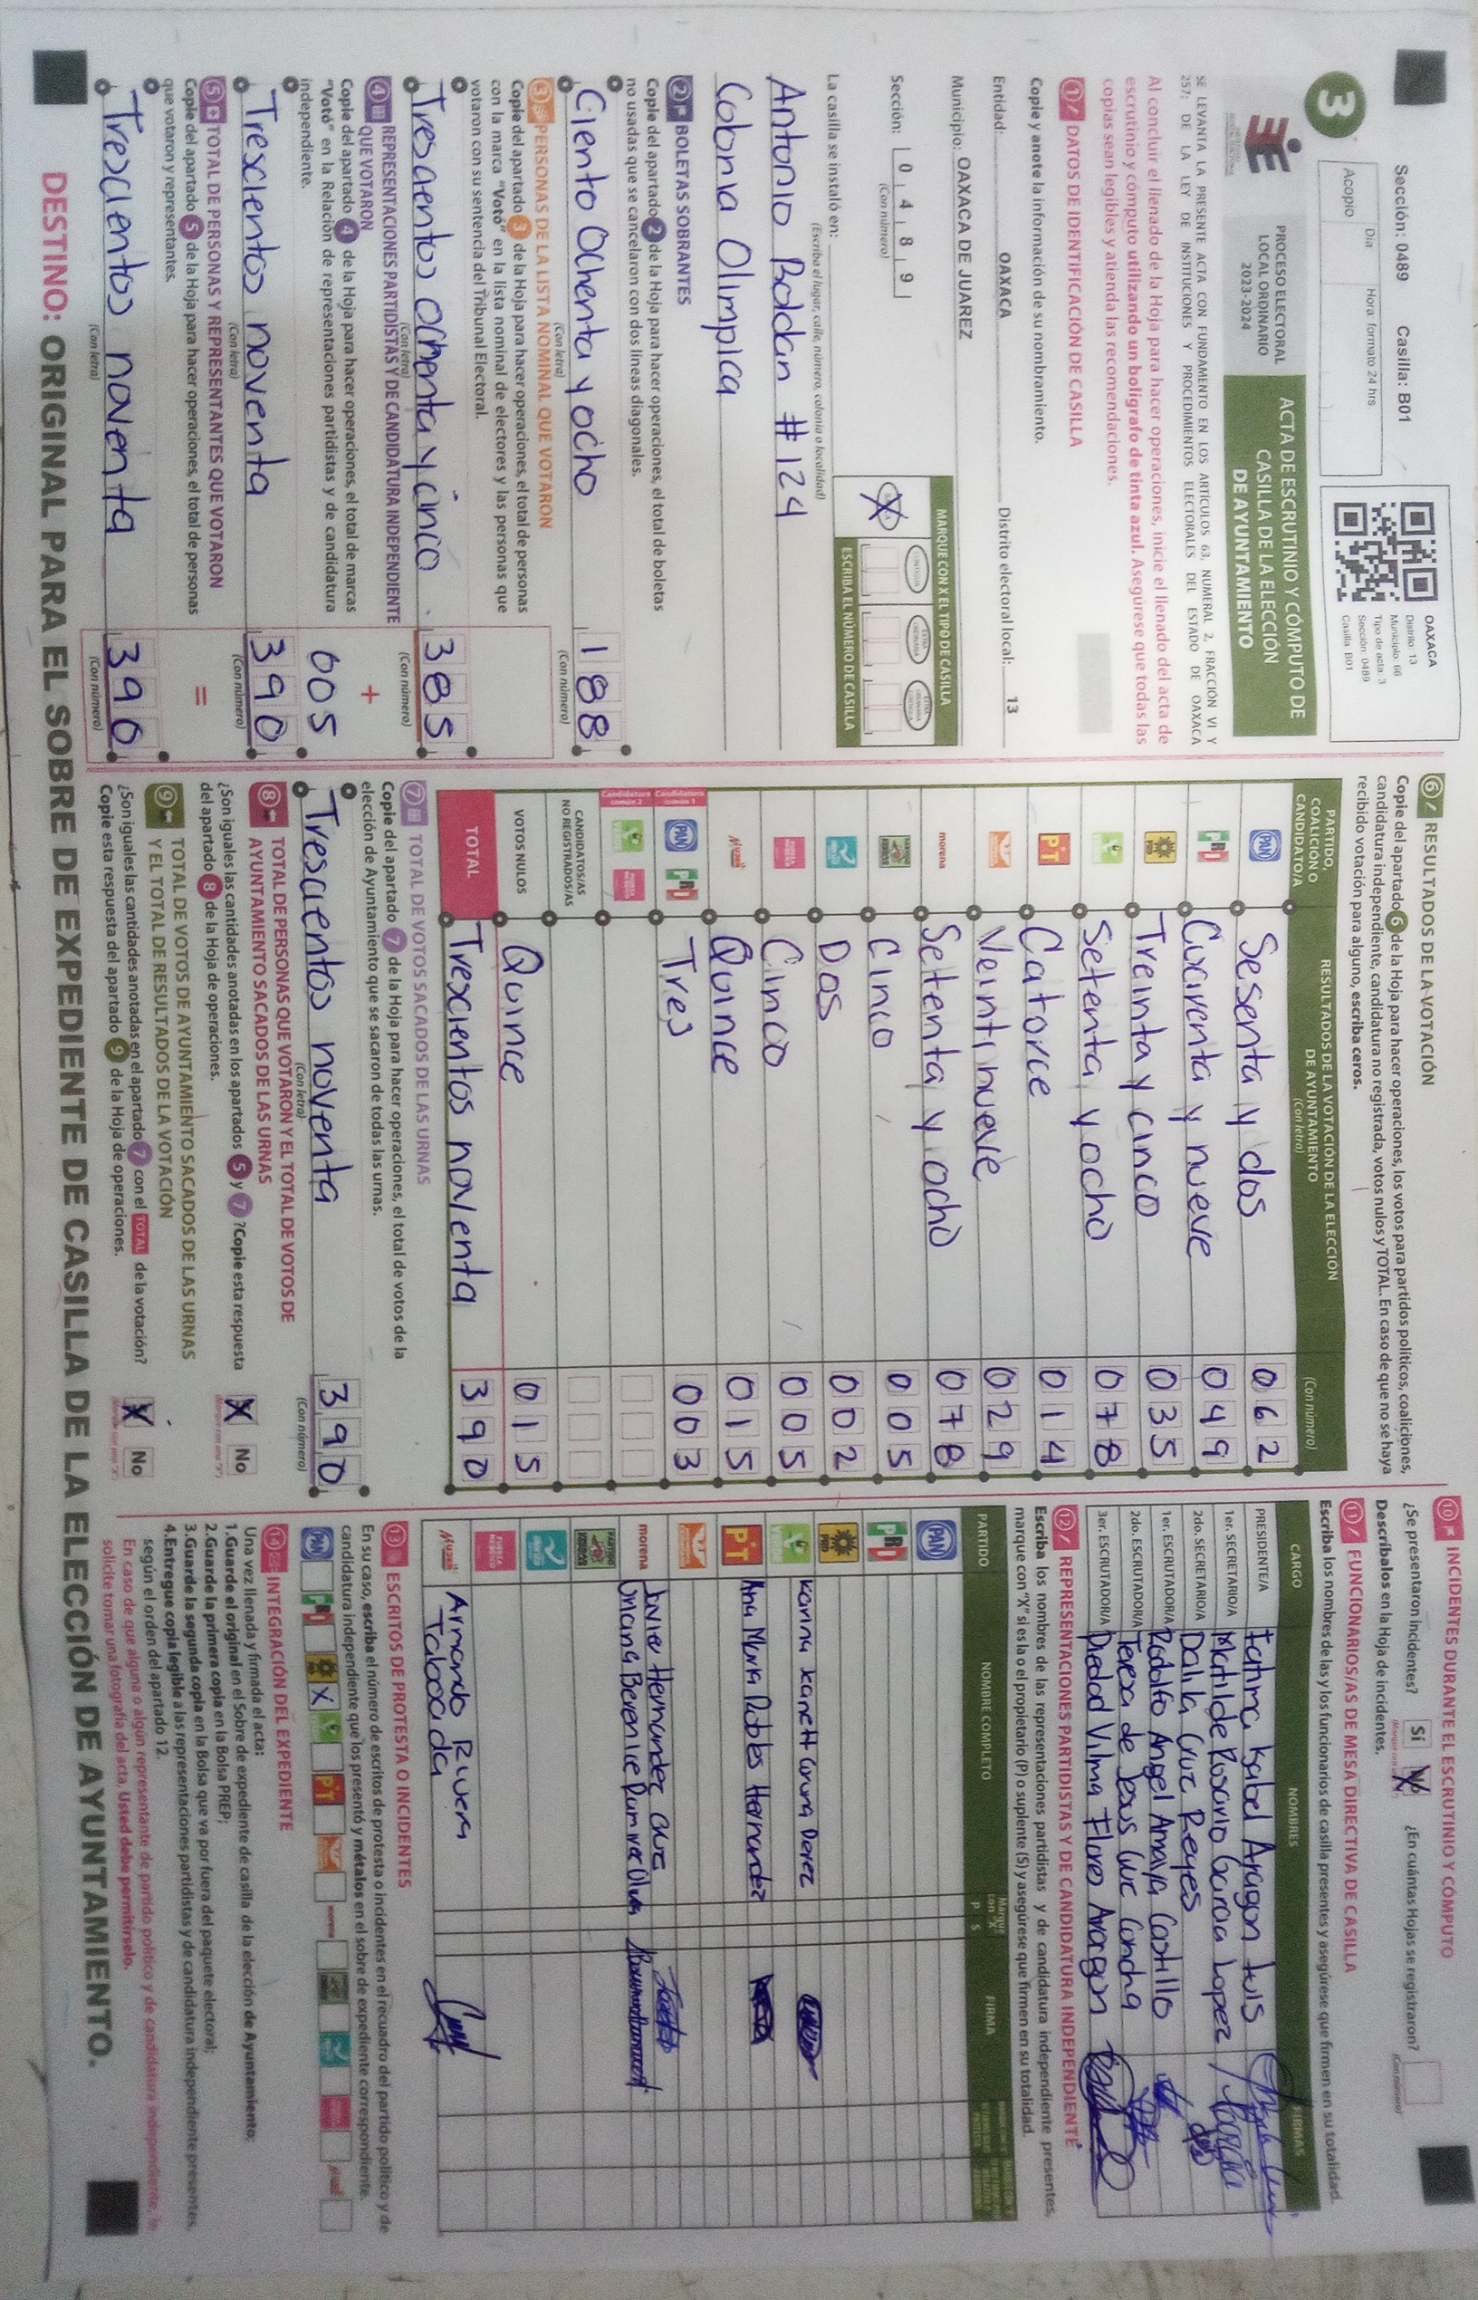 Sección: 0489 Casilla: B01
Día Hora: formato 24 hrs
Acopio
3
OAXACA
Distrito: 13
Municipio: 66
Tipo de acta: 3
Sección: 0489
Casilla: B01
PROCESO ELECTORAL
LOCAL ORDINARIO
2023-2024
ACTA DE ESCRUTINIO Y CÓMPUTO DE
CASILLA DE LA ELECCIÓN
DE AYUNTAMIENTO
SE LEVANTA LA PRESENTE ACTA CON FUNDAMENTO EN LOS ARTÍCULOS 63, NUMERAL 2, FRACCIÓN VI Y
257; DE LA LEY DE INSTITUCIONES Y PROCEDIMIENTOS ELECTORALES DEL ESTADO DE OAXACA
Al concluir el llenado de la Hoja para hacer operaciones, inicie el llenado del acta de
escrutinio y cómputo utilizando un bolígrafo de tinta azul. Asegúrese que todas las
copias sean legibles y atienda las recomendaciones.
1 DATOS DE IDENTIFICACIÓN DE CASILLA
Copie y anote la información de su nombramiento.
Entidad: OAXACA Distrito electoral local: 13
Municipio: OAXACA DE JUAREZ
Sección: 0 4 8 9
(Con número)
MARQUE CON X EL TIPO DE CASILLA
X
ESCRIBA EL NÚMERO DE CASILLA
La casilla se instaló en:
(Escriba el lugar, calle, número, colonia o localidad)
Antonio Roldan #124
Colonia Olimpica
2 BOLETAS SOBRANTES
Copie del apartado 2 de la Hoja para hacer operaciones, el total de boletas
no usadas que se cancelaron con dos líneas diagonales.
Ciento Ochenta y ocho 188
(Con letra) (Con número)
3 PERSONAS DE LA LISTA NOMINAL QUE VOTARON
Copie del apartado 3 de la Hoja para hacer operaciones, el total de personas
con la marca "Votó" en la lista nominal de electores y las personas que
votaron con su sentencia del Tribunal Electoral.
Trescientos ochenta y cinco 385
(Con letra) (Con número)
4 REPRESENTACIONES PARTIDISTAS Y DE CANDIDATURA INDEPENDIENTE
QUE VOTARON
+
Copie del apartado 4 de la Hoja para hacer operaciones, el total de marcas
"Votó" en la Relación de representaciones partidistas y de candidatura
independiente.
005
Trescientos noventa 390
(Con letra) (Con número)
5 TOTAL DE PERSONAS Y REPRESENTANTES QUE VOTARON
=
Copie del apartado 5 de la Hoja para hacer operaciones, el total de personas
que votaron y representantes.
Trescientos noventa 390
(Con letra) (Con número)
6 RESULTADOS DE LA VOTACIÓN
Copie del apartado 6 de la Hoja para hacer operaciones, los votos para partidos políticos, coaliciones,
candidatura independiente, candidatura no registrada, votos nulos y TOTAL. En caso de que no se haya
recibido votación para alguno, escriba ceros.
PARTIDO,
COALICIÓN O
CANDIDATO/A
RESULTADOS DE LA VOTACIÓN DE LA ELECCIÓN
DE AYUNTAMIENTO
(Con letra) (Con número)
PAN Sesenta y dos 062
PRI Cuarenta y nueve 049
PRD Treinta y cinco 035
Setenta y ocho 078
PT Catorce 014
Veinti nueve 029
morena Setenta y ocho 078
Cinco 005
Dos 002
Cinco 005
Quince 015
Candidatura común 1 PAN PRI Tres 003
Candidatura común 2
CANDIDATOS/AS
NO REGISTRADOS/AS
VOTOS NULOS Quince 015
TOTAL Trescientos noventa 390
7 TOTAL DE VOTOS SACADOS DE LAS URNAS
Copie del apartado 7 de la Hoja para hacer operaciones, el total de votos de la
elección de Ayuntamiento que se sacaron de todas las urnas.
Trescientos noventa 390
(Con letra) (Con número)
8 TOTAL DE PERSONAS QUE VOTARON Y EL TOTAL DE VOTOS DE
AYUNTAMIENTO SACADOS DE LAS URNAS
¿Son iguales las cantidades anotadas en los apartados 5 y 7? Copie esta respuesta
del apartado 8 de la Hoja de operaciones.
X No
9 TOTAL DE VOTOS DE AYUNTAMIENTO SACADOS DE LAS URNAS
Y EL TOTAL DE RESULTADOS DE LA VOTACIÓN
¿Son iguales las cantidades anotadas en el apartado 7 con el TOTAL de la votación?
Copie esta respuesta del apartado 9 de la Hoja de operaciones.
X No
10 INCIDENTES DURANTE EL ESCRUTINIO Y CÓMPUTO
¿Se presentaron incidentes? Sí X ¿En cuántas Hojas se registraron?
(Con número)
Descríbalos en la Hoja de incidentes.
11 FUNCIONARIOS/AS DE MESA DIRECTIVA DE CASILLA
Escriba los nombres de las y los funcionarios de casilla presentes y asegúrese que firmen en su totalidad.
CARGO NOMBRES FIRMAS
PRESIDENTE/A Fatima Isabel Aragon Luis
1er. SECRETARIO/A Matilde Rosario Garcia Lopez
2do. SECRETARIO/A Dalila Cruz Reyes
1er. ESCRUTADOR/A Rodolfo Angel Amaya Castillo
2do. ESCRUTADOR/A Teresa de Jesus Cruz Concha
3er. ESCRUTADOR/A Piedad Vilma Flores Aragon
12 REPRESENTACIONES PARTIDISTAS Y DE CANDIDATURA INDEPENDIENTE
Escriba los nombres de las representaciones partidistas y de candidatura independiente presentes,
marque con "X" si es la o el propietario (P) o suplente (S) y asegúrese que firmen en su totalidad.
PARTIDO NOMBRE COMPLETO Marque con "X" P S FIRMA
PAN
PRI
PRD
Karina Perez
PT Ana Maria Robles Hernandez
morena Javier Hernandez Cruz
Berenice
Armando Rivera
Taboada
13 ESCRITOS DE PROTESTA O INCIDENTES
En su caso, escriba el número de escritos de protesta o incidentes en el recuadro del partido político y de
candidatura independiente que los presentó y métalos en el sobre de expediente correspondiente.
PAN PRI X PT
14 INTEGRACIÓN DEL EXPEDIENTE
Una vez llenada y firmada el acta:
1.Guarde el original en el Sobre de expediente de casilla de la elección de Ayuntamiento;
2.Guarde la primera copia en la Bolsa PREP;
3.Guarde la segunda copia en la Bolsa que va por fuera del paquete electoral;
4.Entregue copia legible a las representaciones partidistas y de candidatura independiente presentes,
según el orden del apartado 12.
En caso de que alguna o algún representante de partido político y de candidatura independiente, le
solicite tomar una fotografía del acta, Usted debe permitírselo.
DESTINO: ORIGINAL PARA EL SOBRE DE EXPEDIENTE DE CASILLA DE LA ELECCIÓN DE AYUNTAMIENTO.